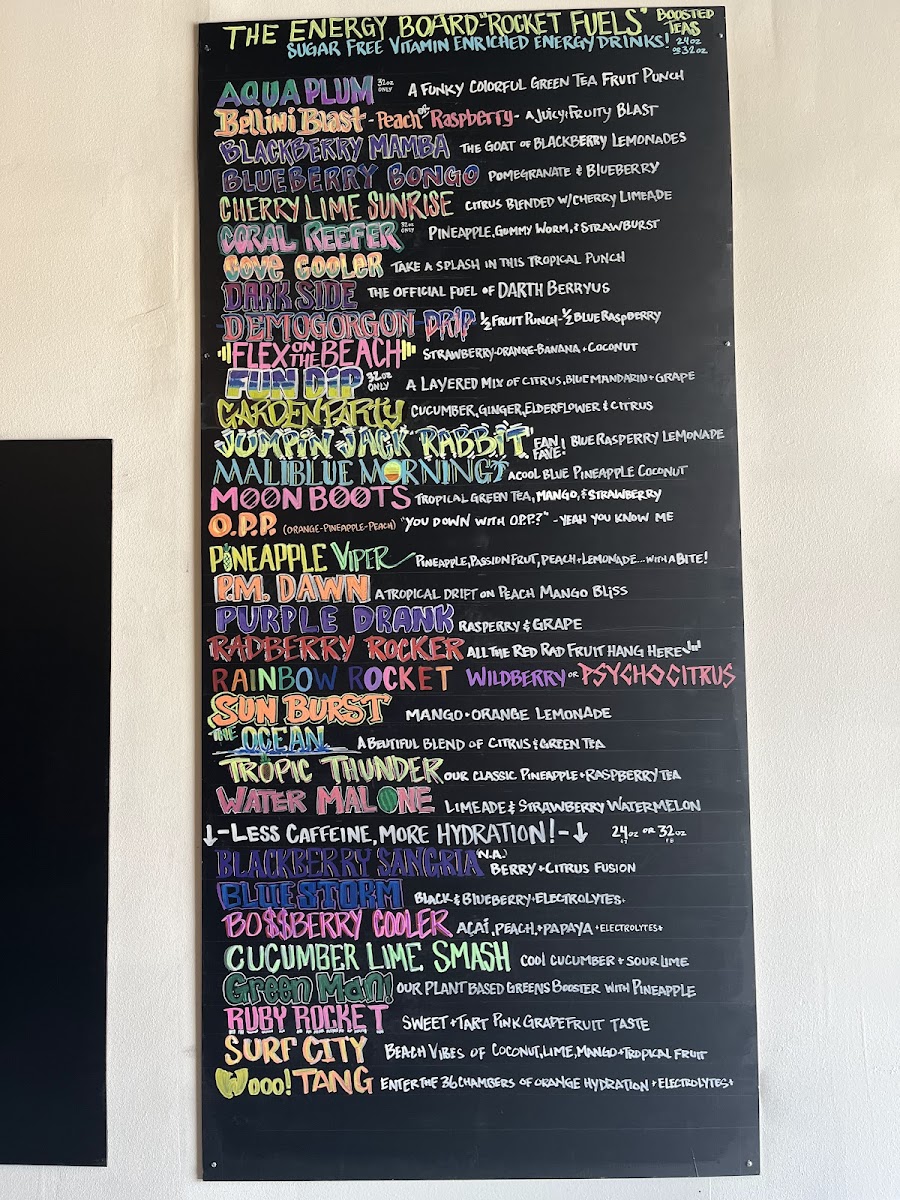 THE ENERGY BOARD "ROCKET FUELS" BOOSTED TEAS
SUGAR FREE VITAMIN ENRICHED ENERGY DRINKS! 24oz or 32oz
AQUA PLUM 32oz ONLY A FUNKY COLORFUL GREEN TEA FRUIT PUNCH
BELLINI BLAST - PEACH or RASPBERRY - A JUICY FRUITY BLAST
BLACKBERRY MAMBA THE GOAT OF BLACKBERRY LEMONADES
BLUEBERRY BONGO POMEGRANATE & BLUEBERRY
CHERRY LIME SUNRISE CITRUS BLENDED W/CHERRY LIMEADE
CORAL REEFER 32oz ONLY PINEAPPLE, GUMMY WORM, & STRAWBURST
COVE COOLER TAKE A SPLASH IN THIS TROPICAL PUNCH
DARK SIDE THE OFFICIAL FUEL OF DARTH BERRYUS
DEMOGORGON DRIP ½ FRUIT PUNCH - ½ BLUE RASPBERRY
FLEX ON THE BEACH STRAWBERRY-ORANGE-BANANA + COCONUT
FUN DIP 32oz ONLY A LAYERED MIX OF CITRUS, BLUE MANDARIN + GRAPE
GARDEN PARTY CUCUMBER, GINGER, ELDERFLOWER & CITRUS
JUMPIN JACK RABBIT FAN FAVE! BLUE RASPERRY LEMONADE
MALIBLUE MORNINGZ A COOL BLUE PINEAPPLE COCONUT
MOON BOOTS TROPICAL GREEN TEA, MANGO, & STRAWBERRY
O.P.P. (ORANGE-PINEAPPLE-PEACH) "YOU DOWN WITH O.P.P.?" - YEAH YOU KNOW ME
PINEAPPLE VIPER PINEAPPLE, PASSION FRUIT, PEACH + LEMONADE... WITH A BITE!
P.M. DAWN A TROPICAL DRIFT ON PEACH MANGO BLISS
PURPLE DRANK RASPERRY & GRAPE
RADBERRY ROCKER ALL THE RED RAD FRUIT HANG HERE
RAINBOW ROCKET WILDBERRY OR PSYCHO CITRUS
SUN BURST MANGO + ORANGE LEMONADE
THE OCEAN A BEUTIFUL BLEND OF CITRUS & GREEN TEA
TROPIC THUNDER OUR CLASSIC PINEAPPLE + RASPBERRY TEA
WATER MALONE LIMEADE & STRAWBERRY WATERMELON
↓ - LESS CAFFEINE, MORE HYDRATION! - ↓ 24oz OR 32oz
BLACKBERRY SANGRIA (N.A.) BERRY + CITRUS FUSION
BLUE STORM BLACK & BLUEBERRY +ELECTROLYTES+
BO$$BERRY COOLER AÇAÍ, PEACH, + PAPAYA +ELECTROLYTES+
CUCUMBER LIME SMASH COOL CUCUMBER + SOUR LIME
GREEN MAN! OUR PLANT BASED GREENS BOOSTER WITH PINEAPPLE
RUBY ROCKET SWEET + TART PINK GRAPEFRUIT TASTE
SURF CITY BEACH VIBES OF COCONUT, LIME, MANGO + TROPICAL FRUIT
WOOO! TANG ENTER THE 36 CHAMBERS OF ORANGE HYDRATION +ELECTROLYTES+